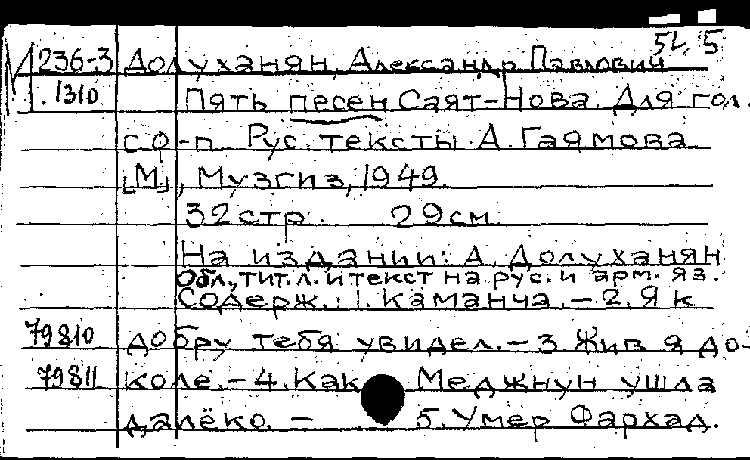 52.5
М 236-3 Долуханян, Александр Павлович
1310 Пять песен Саят-Нова. Для гол.
с ф-п. Рус. тексты А. Гаямова.
[М], Музгиз, 1949.
32 стр. 29 см.
На издании: А. Долуханян
Обл., тит. л. и текст на рус. и арм. яз.
Содерж.: 1. Каманча. – 2. Я к
79810 добру тебя увидел. – 3. Жив я до-
79811 коле. – 4. Как Меджнун ушла
далёко. – 5. Умер Фархад.